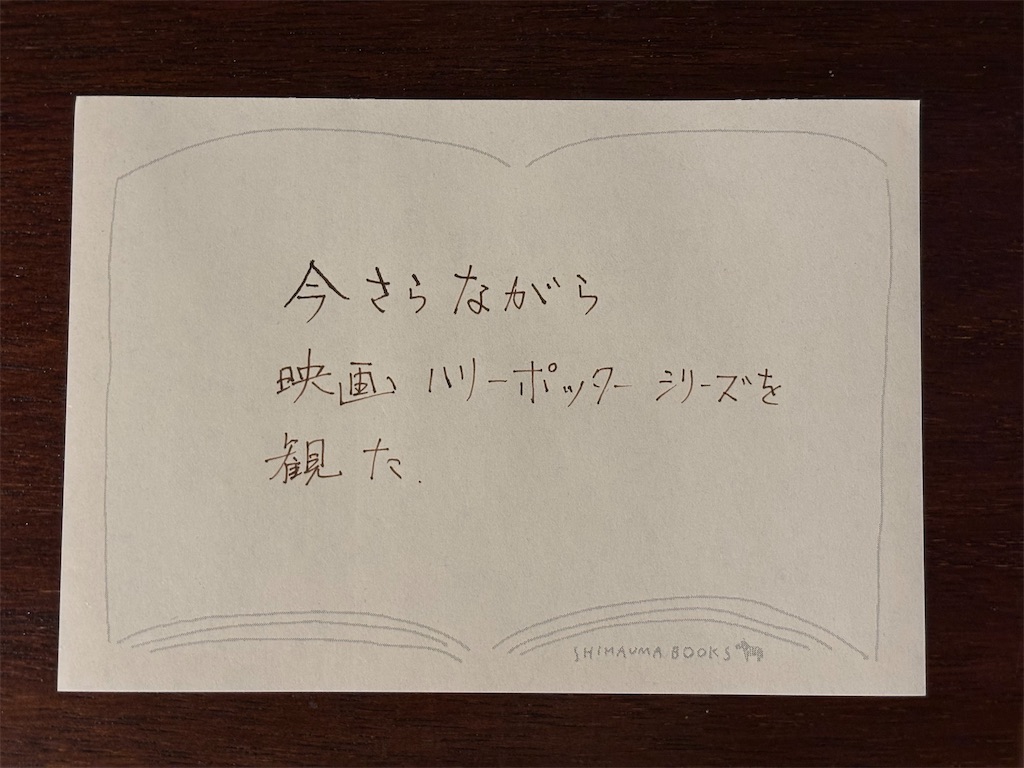 今さらながら
映画、ハリーポッターシリーズを
観た.
SHIMAUMA BOOKS